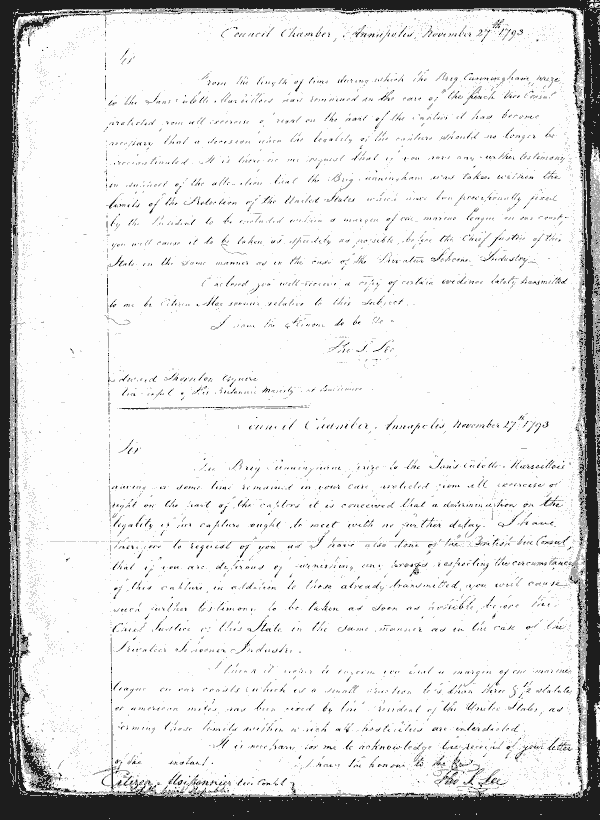 Council Chamber, Annapolis, November 27th 1793
Sir
From the length of time during which the Brig Cunningham, prize
to the Sans Culotte Marseillois has remained in the care of the french Vice Consul
protected from all exercise of right on the part of the captors it has become
necessary that a decision upon the legality of the capture should no longer be
procrastinated. It is therefore my request that if you have any further testimony
in support of the allegation that the Brig Cunningham was taken within the
limits of the Protection of the United States which have been provisionally fixed
by the President to be included within a margin of one marine league on our coast,
you will cause it to be taken as speedily as possible before the Chief Justice of this
State in the same manner as in the case of the Privateer Schooner Industry.
Enclosed you will receive a copy of certain evidence lately transmitted
to me by Citizen Moissonnier relative to this subject.
I have the Honour to be &c
Tho S. Lee
Edward Thornton Esquire
Vice Consul of His Britannic Majesty at Baltimore
Council Chamber, Annapolis, November 27th 1793
Sir
The Brig Cunningham prize to the Sans Culotte Marseillois
having for some time remained in your care protected from all exercise of
right on the part of the captors it is conceived that a determination on the
legality of her capture ought to meet with no further delay. I have
therefore to request of you as I have also done of the British Vice Consul,
that if you are desirous of furnishing any proofs respecting the circumstances
of this capture, in addition to those already transmitted, you will cause
such further testimony to be taken as soon as possible before the
Chief Justice of this State in the same manner as in the case of the
Privateer Schooner Industry.
I think it proper to inform you that a margin of one marine
league on our coasts which is a small fraction less than three & 1/2 statute
or american miles has been fixed by the President of the United States, as
forming those limits within which all hostilities are interdicted.
It is necessary for me to acknowledge the receipt of your letter
of the instant. I have the honour to be &c
Citizen Moissonnier Vice Consul Tho S. Lee
of the french Republic